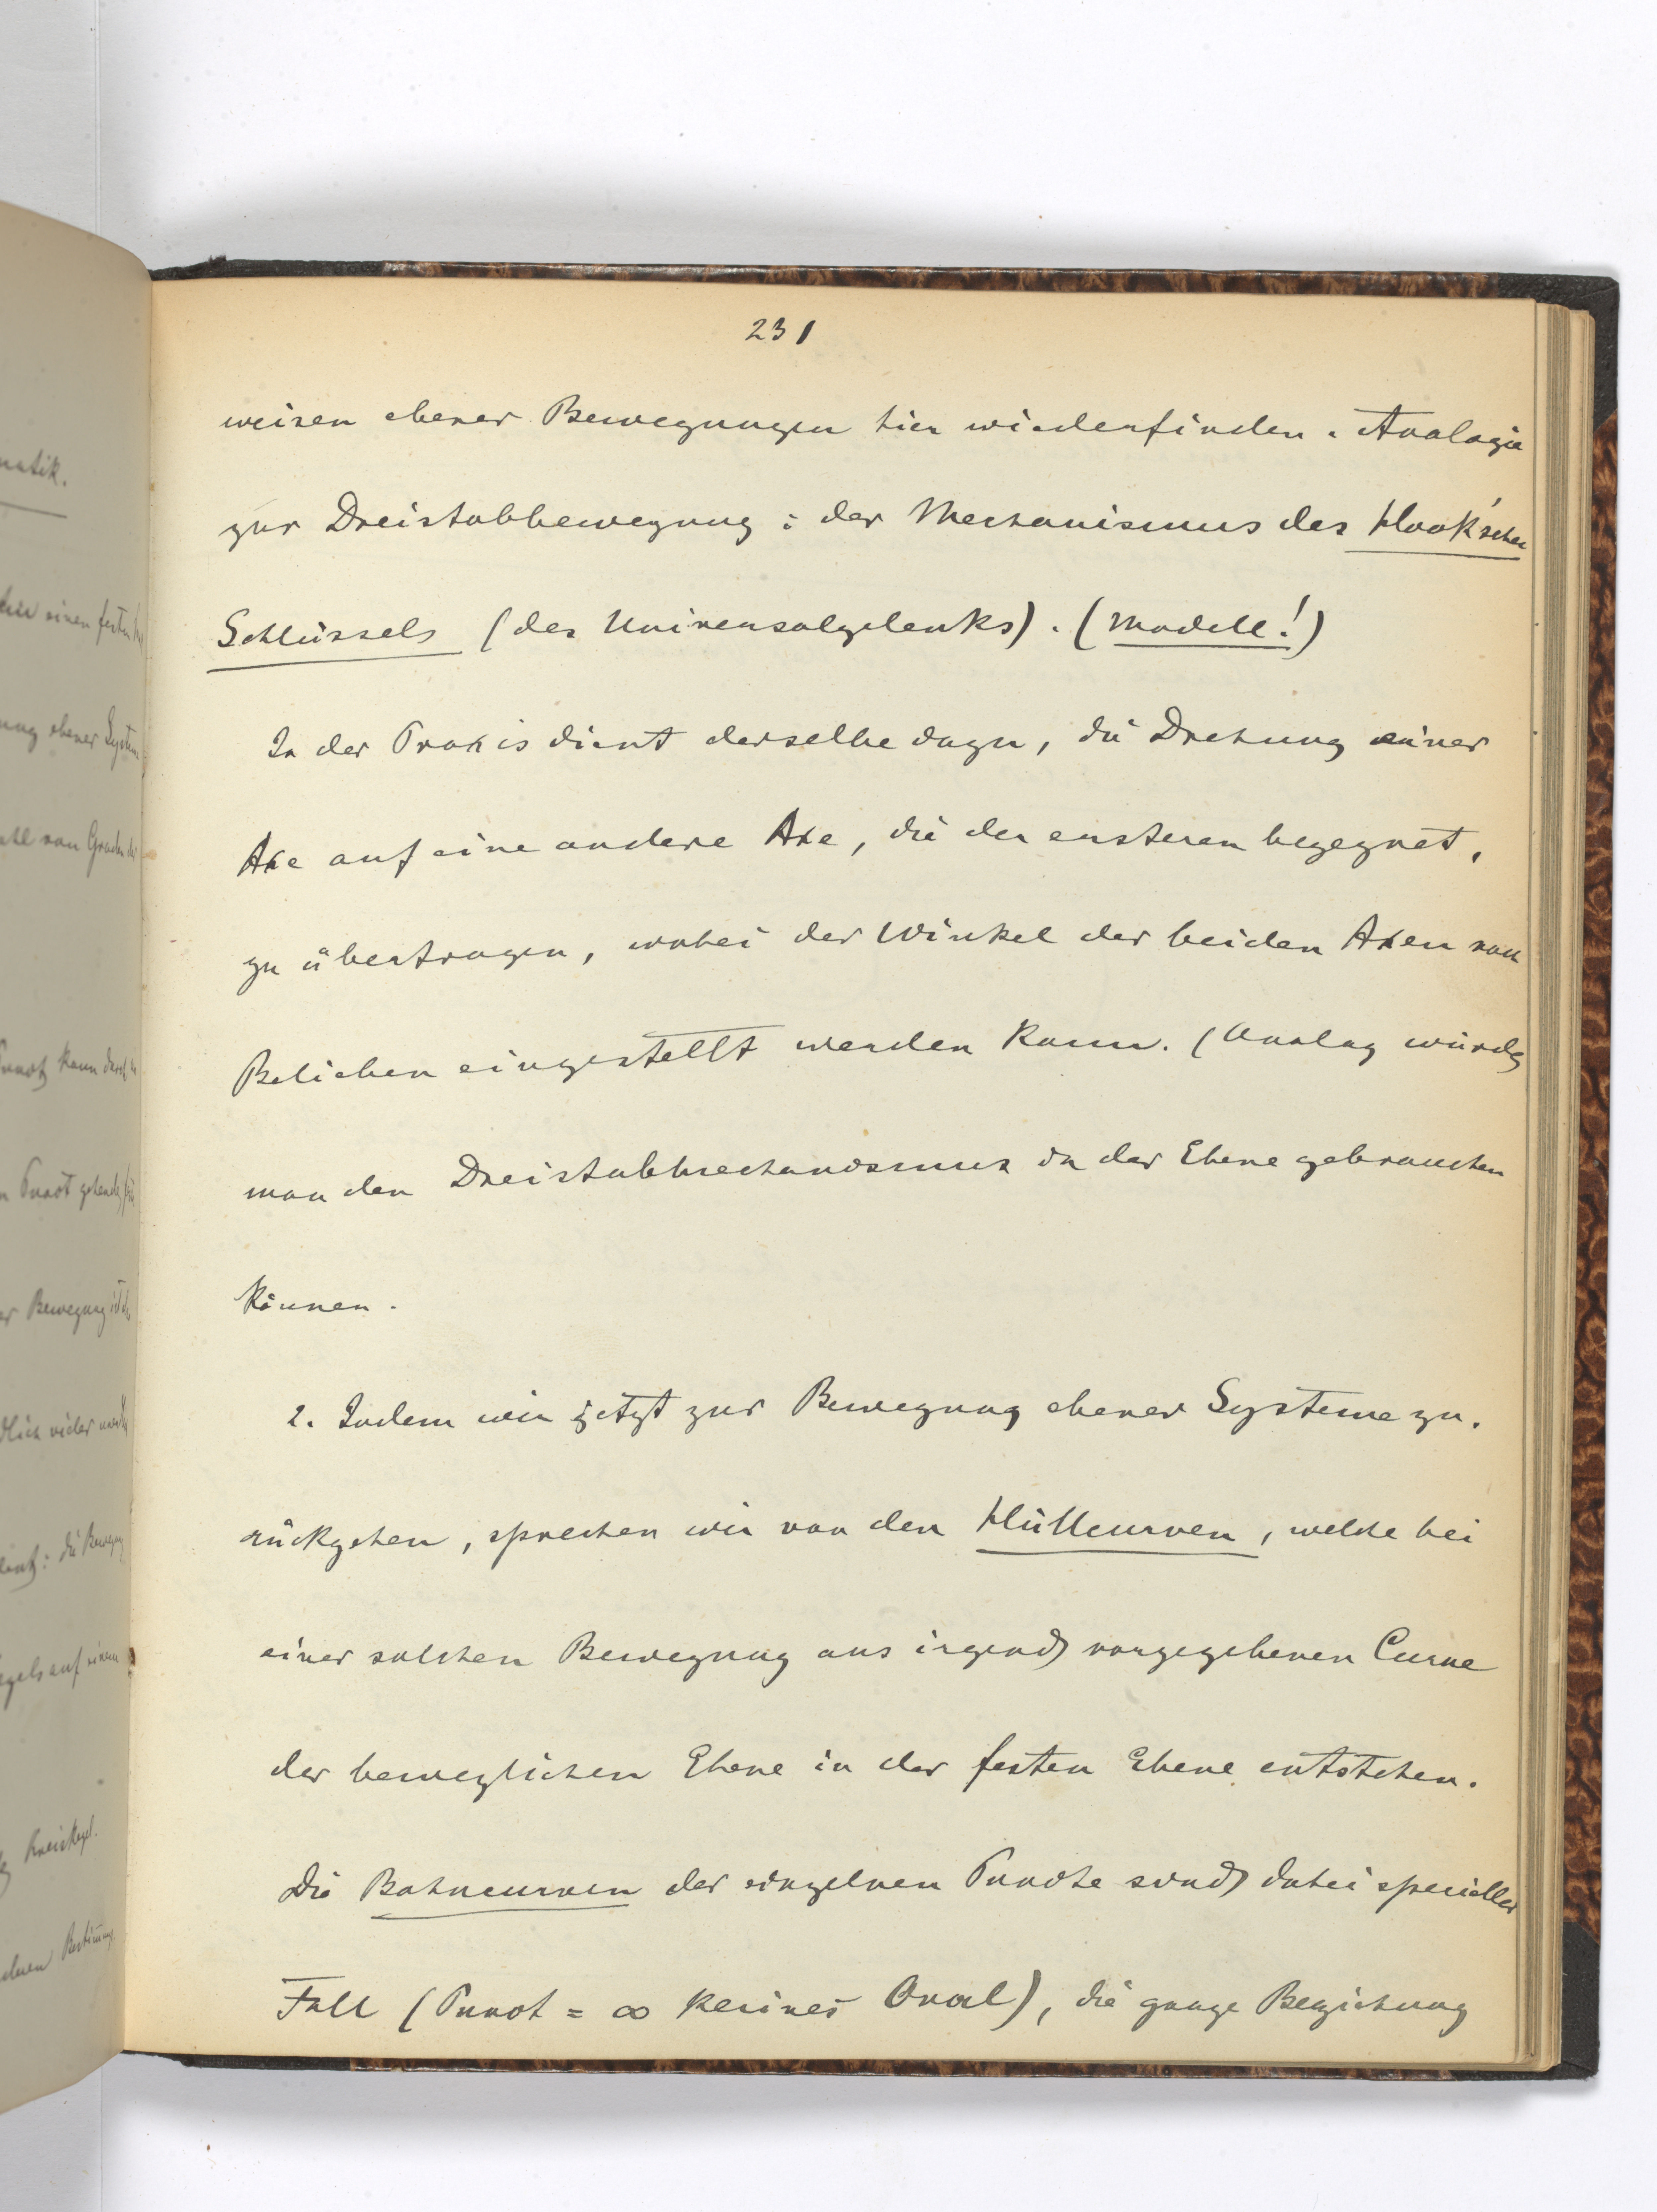 231
weisen ebener Bewegungen hier wiederfinden. Analogie
zur Dreistabbewegung: der Mechanismus des Hook'schen
Schlüssels (des Universalgelenks). (Modell!)
In der Praxis dient derselbe dazu, die Drehung einer
Axe auf eine andere Axe, die der ersteren begegnet,
zu übertragen, wobei der Winkel der beiden Axen nach
Belieben eingestellt werden kann. (Analog würde
man den Dreistabmechanismus in der Ebene gebrauchen
können.
2. Indem wir jetzt zur Bewegung ebener Systeme zu-
rückgehen, sprechen wir von den Hüllcurven, welche bei
einer solchen Bewegung aus irgend vorgegebenen Curve
der beweglichen Ebene in der festen Ebene entstehen.
Die Bahncurven der einzelnen Puncte sind dabei specieller
Fall (Punct = ∞ kleines Oval), die ganze Beziehung
matik.
einen festen
ebener System
von Graden
Punct kann durch
Punct gehende
Bewegung ist
: die Bewegung
auf einem
Kreiskegel.